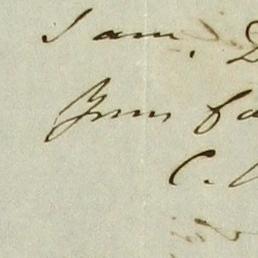 I am, D
Yours fa
C.